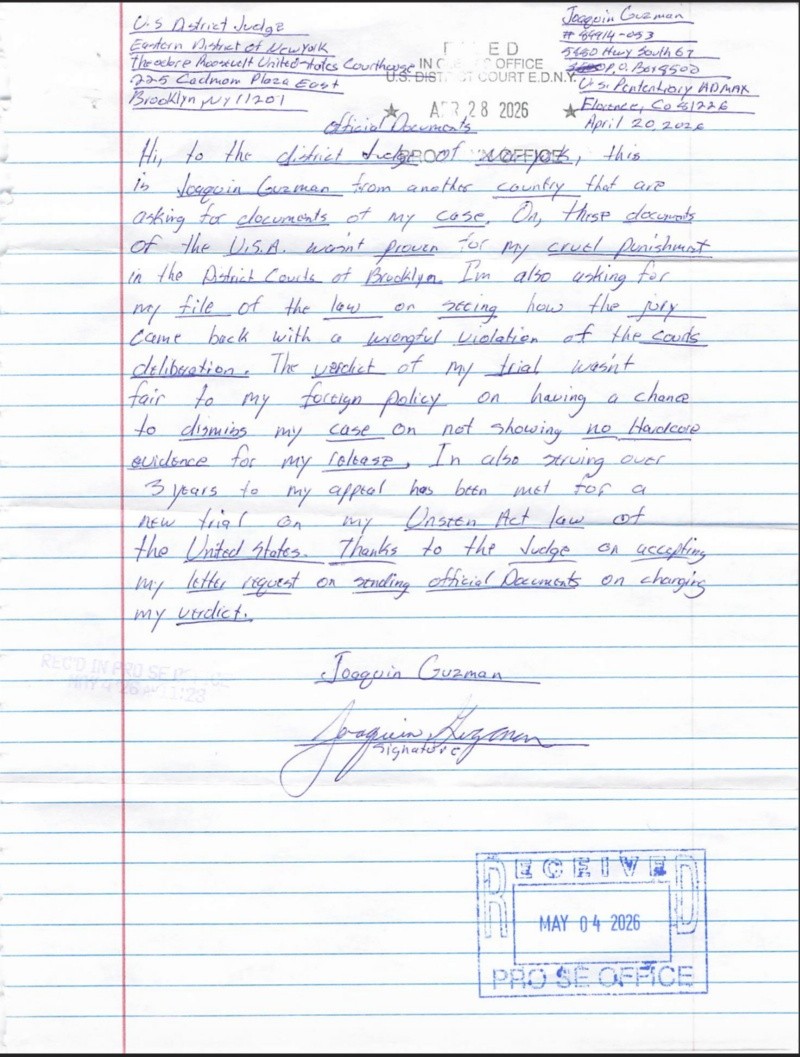 U.S District Judge
Eastern District of New York
Theodore Roosevelt United-states Courthouse
225 Cadmom Plaza East
Brooklyn NY 11201
Joaquin Guzman
# 89914-053
5880 Hwy South 67
P.O. Box 8500
U.S. Pentenitiary ADMAX
Florence, Co 81226
April 20, 2026
FILED
IN CLERK'S OFFICE
U.S. DISTRICT COURT E.D.N.Y.
★ APR 28 2026 ★
PRO SE OFFICE
Official Documents
Hi, to the district Judge of new york, this
is Joaquin Guzman from another country that are
asking for documents of my case. On, these documents
of the U.S.A. wasn't proven for my cruel punishment
in the District Courts of Brooklyn. I'm also asking for
my file of the law on seeing how the jury
came back with a wrongful violation of the courts
deliberation. The verdict of my trial wasn't
fair to my foreign policy on having a chance
to dismiss my case on not showing no Hardcore
evidence for my release. In also serving over
3 years to my appeal has been met for a
new trial on my Act law of
the United States. Thanks to the Judge on accepting
my letter request on sending official Documents on charging
my verdict.
REC'D IN PRO SE OFFICE
MAY 4 '26 11:23
Joaquin Guzman
Joaquin Guzman
signature
RECEIVED
MAY 04 2026
PRO SE OFFICE